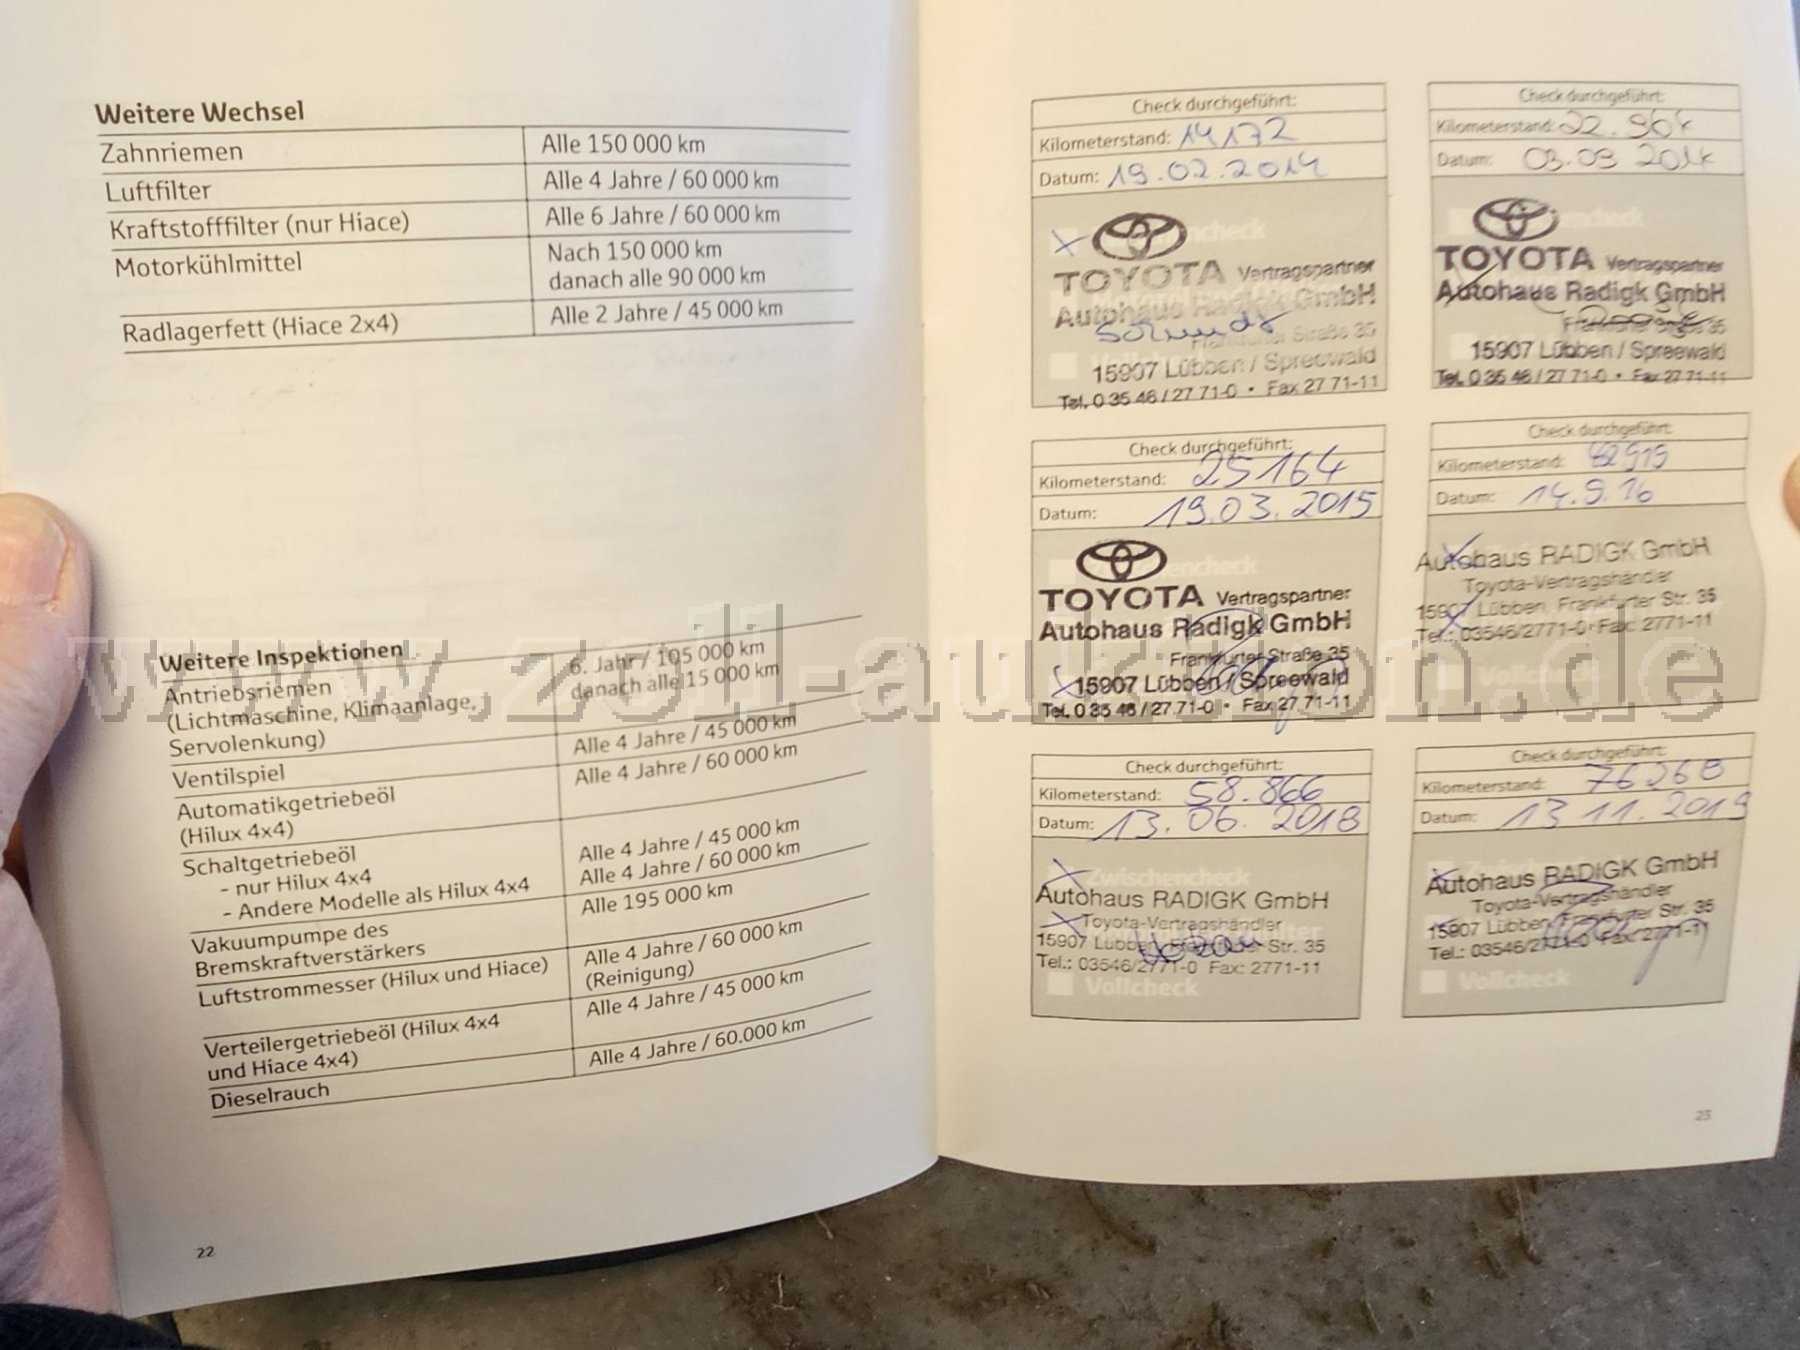 Weitere Wechsel
Zahnriemen Alle 150 000 km
Luftfilter Alle 4 Jahre / 60 000 km
Kraftstofffilter (nur Hiace) Alle 6 Jahre / 60 000 km
Motorkühlmittel Nach 150 000 km
danach alle 90 000 km
Radlagerfett (Hiace 2x4) Alle 2 Jahre / 45 000 km
Weitere Inspektionen
Antriebsriemen 6. Jahr / 105 000 km
(Lichtmaschine, Klimaanlage, danach alle 15 000 km
Servolenkung)
Ventilspiel Alle 4 Jahre / 45 000 km
Automatikgetriebeöl Alle 4 Jahre / 60 000 km
(Hilux 4x4)
Schaltgetriebeöl
- nur Hilux 4x4 Alle 4 Jahre / 45 000 km
- Andere Modelle als Hilux 4x4 Alle 4 Jahre / 60 000 km
Vakuumpumpe des Alle 195 000 km
Bremskraftverstärkers
Luftstrommesser (Hilux und Hiace) Alle 4 Jahre / 60 000 km
(Reinigung)
Verteilergetriebeöl (Hilux 4x4 Alle 4 Jahre / 45 000 km
und Hiace 4x4)
Dieselrauch Alle 4 Jahre / 60.000 km
22
Check durchgeführt:
Kilometerstand: 14172
Datum: 19.02.2014
TOYOTA Vertragspartner
Autohaus Radigk GmbH
Frankfurter Straße 35
15907 Lübben / Spreewald
Tel. 0 35 46 / 27 71-0 • Fax 27 71-11
Check durchgeführt:
Kilometerstand: 22.964
Datum: 03.09 2014
TOYOTA Vertragspartner
Autohaus Radigk GmbH
Frankfurter Straße 35
15907 Lübben / Spreewald
Tel. 0 35 46 / 27 71-0 • Fax 27 71-11
Check durchgeführt:
Kilometerstand: 25164
Datum: 19.03.2015
Zwischencheck
TOYOTA Vertragspartner
Autohaus Radigk GmbH
Frankfurter Straße 35
15907 Lübben / Spreewald
Tel. 0 35 46 / 27 71-0 • Fax 27 71-11
Check durchgeführt:
Kilometerstand:
Datum: 14.9.16
Autohaus RADIGK GmbH
Toyota-Vertragshändler
15907 Lübben, Frankfurter Str. 35
Tel.: 03546/2771-0 • Fax: 2771-11
Vollcheck
Check durchgeführt:
Kilometerstand: 58.866
Datum: 13.06.2018
Zwischencheck
Autohaus RADIGK GmbH
Toyota-Vertragshändler
15907 Lübben, Frankfurter Str. 35
Tel.: 03546/2771-0 Fax: 2771-11
Vollcheck
Check durchgeführt:
Kilometerstand: 76368
Datum: 13 11. 2019
Zwischencheck
Autohaus RADIGK GmbH
Toyota-Vertragshändler
15907 Lübben, Frankfurter Str. 35
Tel.: 03546/2771-0 Fax: 2771-11
Vollcheck
23
www.zoll-auktion.de